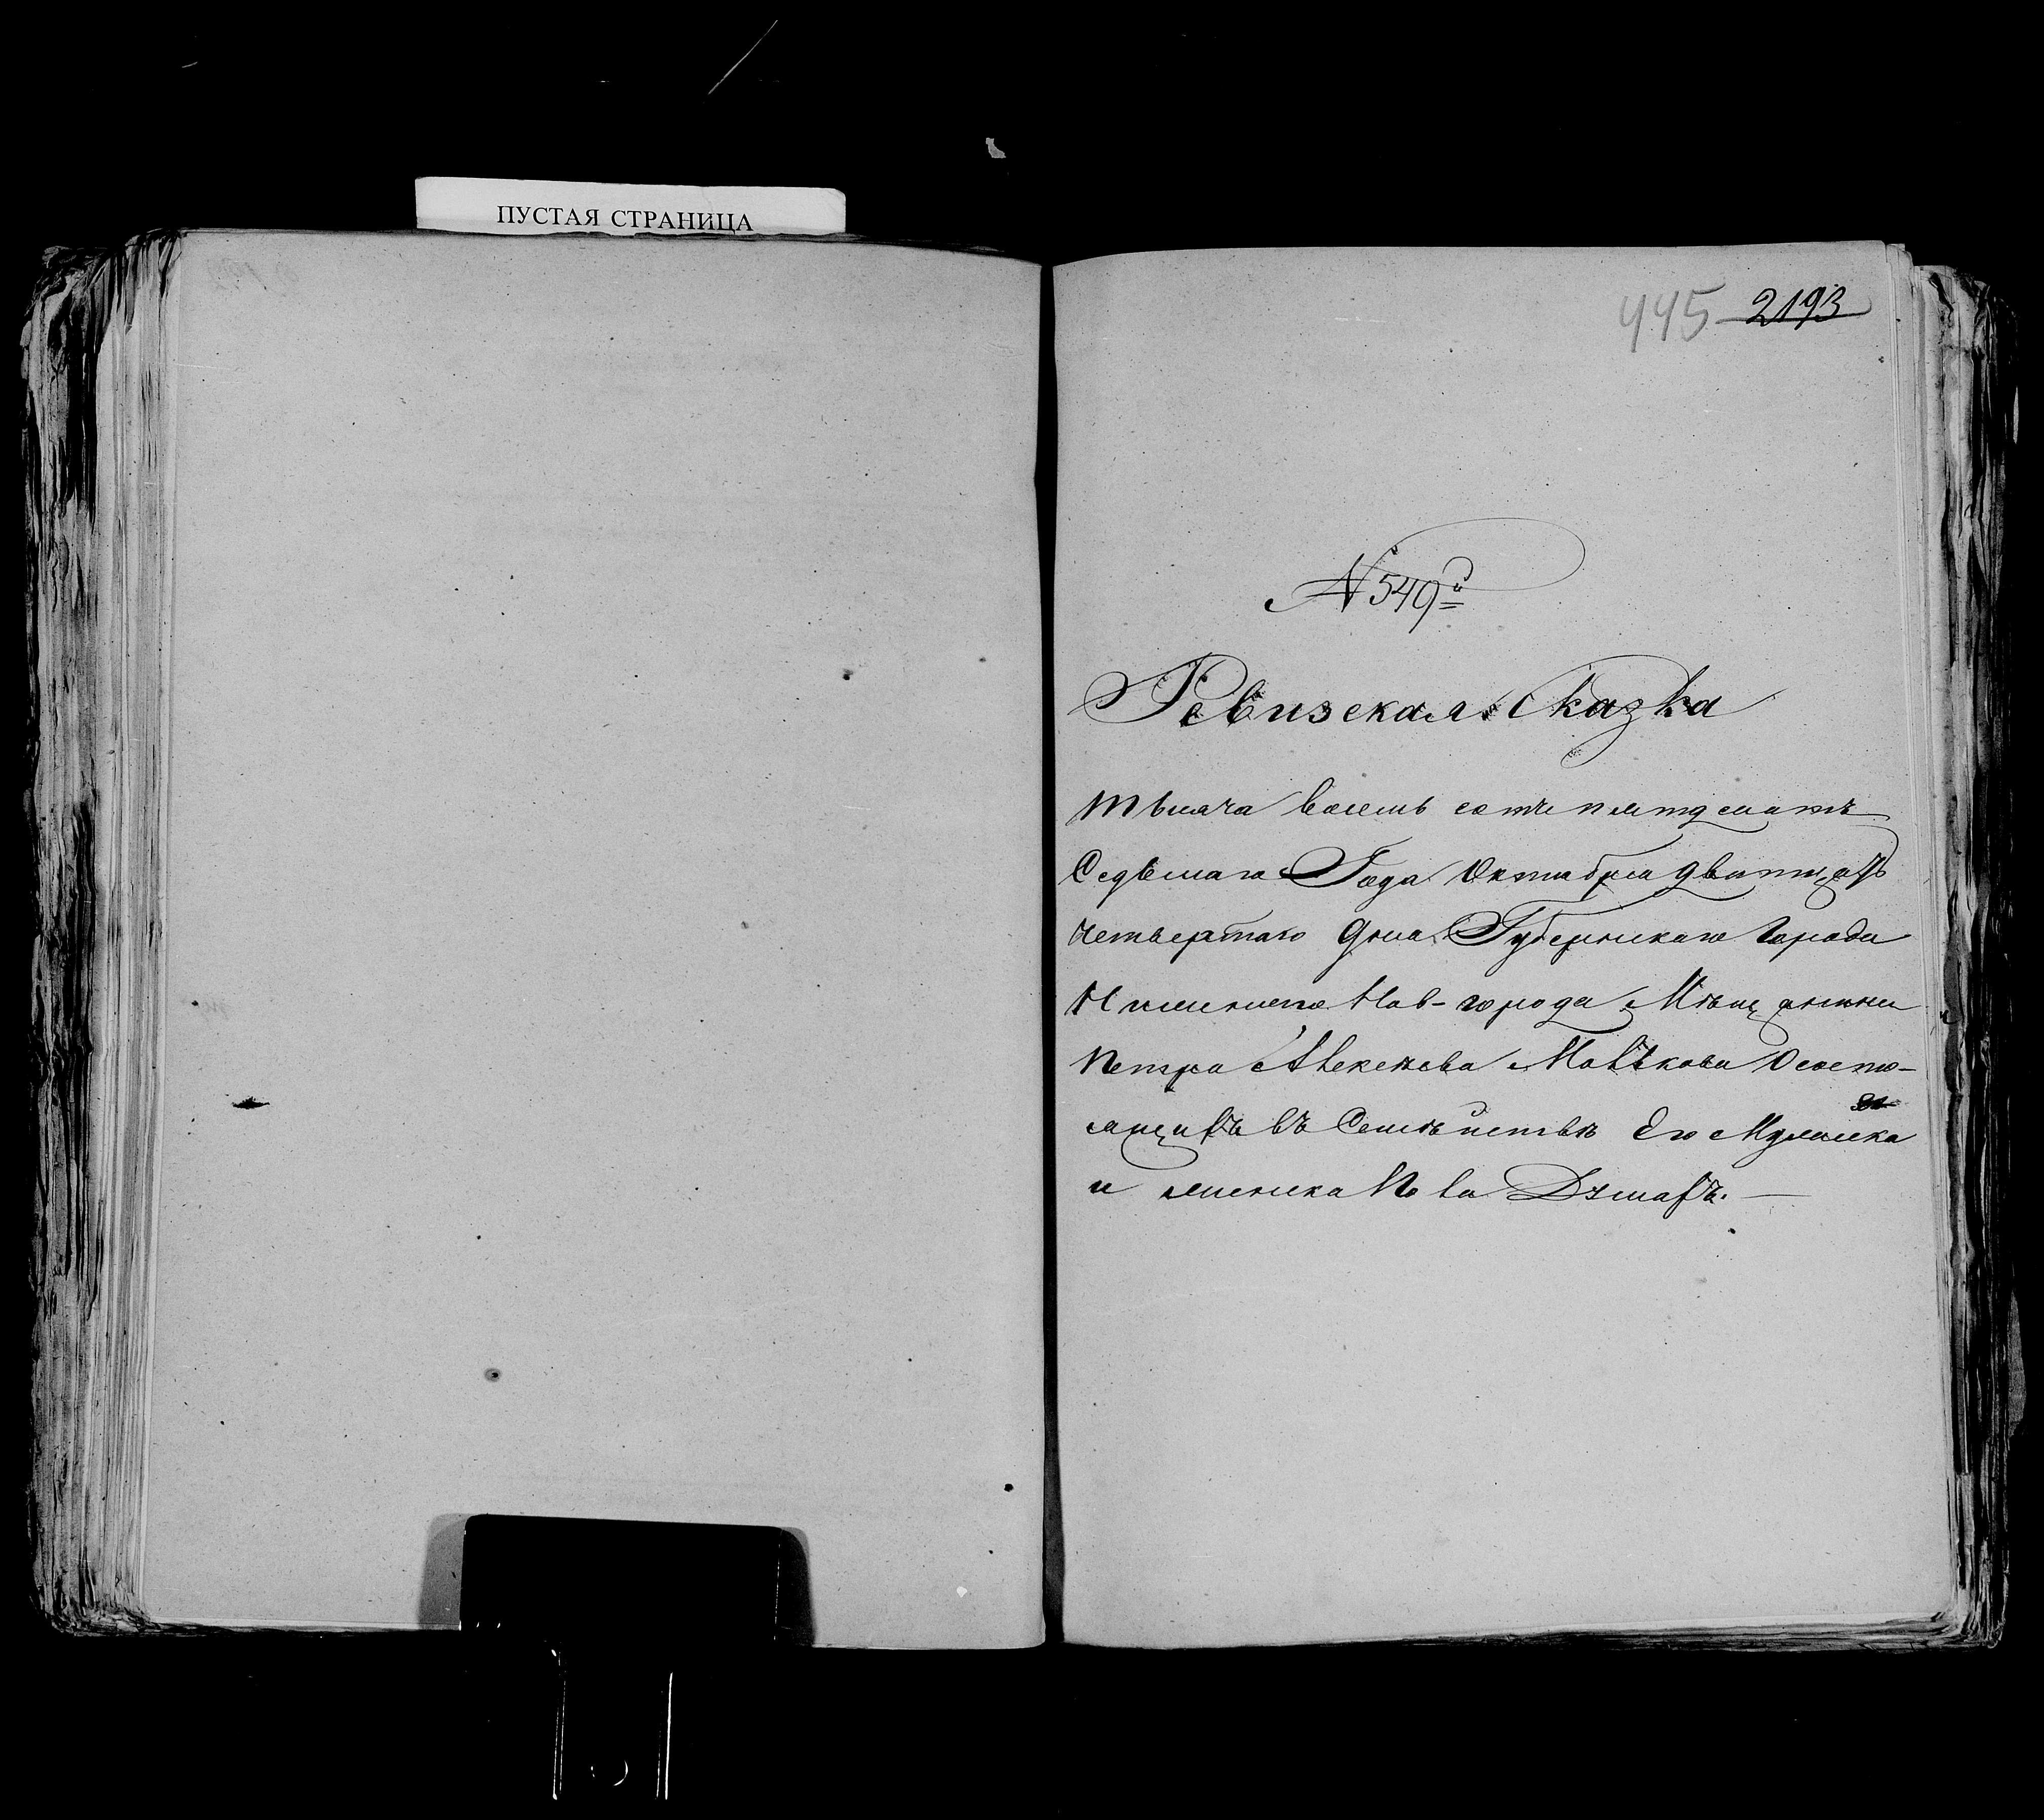 ПУСТАЯ СТРАНИЦА
445 2193
N 549й
Ревизская Сказка
тысяча восемь сотъ пятдесятъ
Седьмаго Года Октября дватцать
четвертаго дня Губернскаго Города
Нижняго Нов-города Мѣщанина
Петра Алексѣева О состо-
ящихъ въ Семѣйствѣ Его Мужеска
и женска Пола Душахъ.